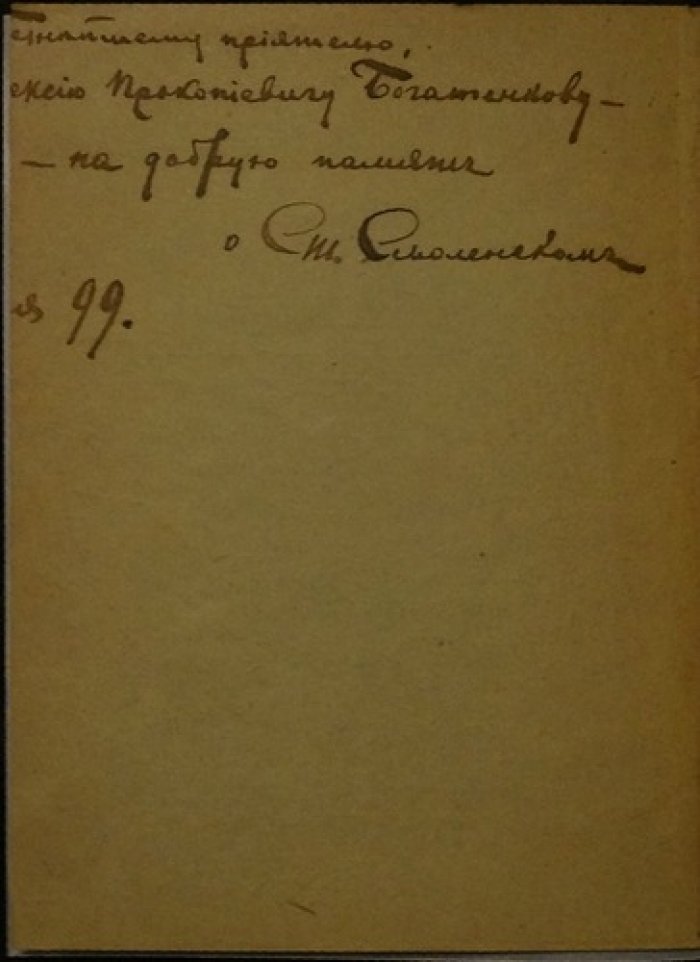 пріятелю,
ексію Прокопіевичу Богатенкову —
— на добрую память
о Ст. Смоленскомъ
я 99.